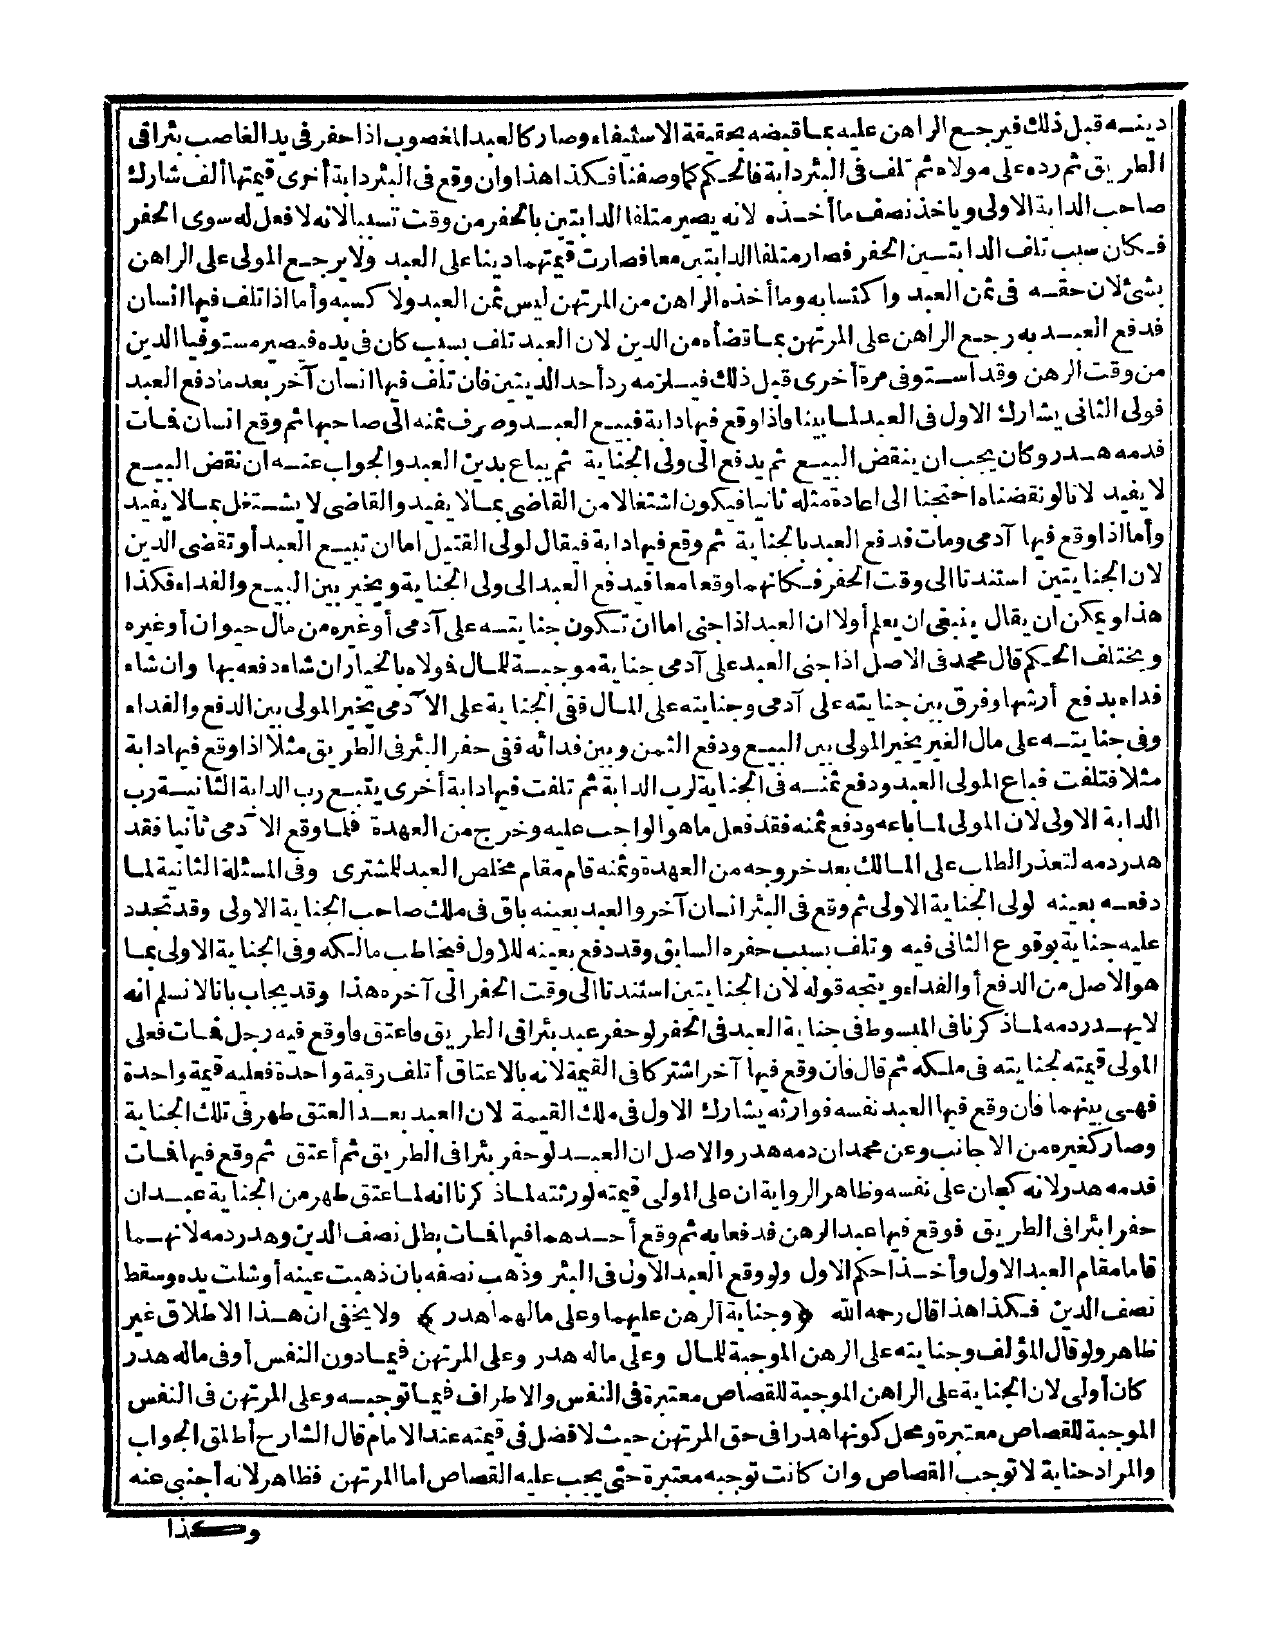 دينه قبل ذلك فيرجع الراهن عليه بما قبضه بحقيقة الاستيفاء وصار كالعبد المغصوب اذا حفر في يد الغاصب بئرا في
الطريق ثم رده على مولاه ثم تلف في البئر دابة فالحكم كما وصفنا فكذا هذا وان وقع في البئر دابة أخرى قيمتها ألف شارك
صاحب الدابة الاولى وياخذ نصف ما أخذه لانه يصير متلفا الدابتين بالحفر من وقت تسببا لانه لا فعل له سوى الحفر
فكان سبب تلف الدابتين الحفر فصار متلفا الدابتين معا فصارت قيمتهما دينا على العبد ولا يرجع المولى على الراهن
بشئ لان حقه في ثمن العبد واكتسابه وما أخذه الراهن من المرتهن ليس ثمن العبد ولا كسبه وأما اذا تلف فيها انسان
فدفع العبد به رجع الراهن على المرتهن بما قضأه من الدين لان العبد تلف بسبب كان في يده فيصير مستوفيا الدين
من وقت الرهن وقد استوفى مرة أخرى قبل ذلك فيلزمه رد أحد الديتين فان تلف فيها انسان آخر بعد ما دفع العبد
فولى الثانى يشارك الاول في العبد لما بينا واذا وقع فيها دابة فبيع العبد وصرف ثمنه الى صاحبها ثم وقع انسان فمات
فدمه هدر وكان يجب ان ينقض البيع ثم يدفع الى ولى الجناية ثم يباع بدين العبد والجواب عنه ان نقض البيع
لا يفيد لانا لو نقضناه احتجنا الى اعادة مثله ثانيا فيكون اشتغالا من القاضى بما لا يفيد والقاضى لا يشتغل بما لا يفيد
وأما اذا وقع فيها آدمى ومات فدفع العبد بالجناية ثم وقع فيها دابة فيقال لولى القتيل اما ان تبيع العبد أو تقضى الدين
لان الجنايتين استندتا الى وقت الحفر فكانهما وقعا معا فيدفع العبد الى ولى الجناية ويخير بين البيع والفداء فكذا
هذا ويمكن ان يقال ينبغى ان يعلم أولا ان العبد اذا جنى اما ان تكون جنايته على آدمى أو غيره من مال حيوان أو غيره
ويختلف الحكم قال محمد في الاصل اذا جنى العبد على آدمى جناية موجبة للمال فمولاه بالخيار ان شاء دفعه بها وان شاء
فداه بدفع أرشها وفرق بين جنايته على آدمى وجنايته على المال ففى الجناية على الآدمى يخير المولى بين الدفع والفداء
وفى جنايته على مال الغير يخير المولى بين البيع ودفع الثمن وبين فدائه ففى حفر البئر في الطريق مثلا اذا وقع فيها دابة
مثلا فتلفت فباع المولى العبد ودفع ثمنه في الجناية لرب الدابة ثم تلفت فيها دابة أخرى يتبع رب الدابة الثانية رب
الدابة الاولى لان المولى لما باعه ودفع ثمنه فقد فعل ما هو الواجب عليه وخرج من العهدة فلما وقع الآدمى ثانيا فقد
هدر دمه لتعذر الطلب على المالك بعد خروجه من العهدة وثمنه قام مقام مخلص العبد للمشترى وفى المسئلة الثانية لما
دفعه بعينه لولى الجناية الاولى ثم وقع في البئر انسان آخر والعبد بعينه باق في ملك صاحب الجناية الاولى وقد تجدد
عليه جناية بوقوع الثانى فيه وتلف بسبب حفره السابق وقد دفع بعينه للاول فيخاطب مالكه وفى الجناية الاولى بما
هو الاصل من الدفع أو الفداء ويتجه قوله لان الجنايتين استندتا الى وقت الحفر الى آخره هذا وقد يجاب بانا لا نسلم انه
لا يهدر دمه لما ذكرنا في المبسوط في جناية العبد في الحفر لو حفر عبد بئرا في الطريق فاعتق فاوقع فيه رجل فمات فعلى
المولى قيمته لجنايته في ملكه ثم قال فان وقع فيها آخر اشتركا في القيمة لانه بالاعتاق أتلف رقبة واحدة فعليه قيمة واحدة
فهى بينهما فان وقع فيها العبد نفسه فوارثه يشارك الاول في ملك القيمة لان العبد بعد العتق طهر في تلك الجناية
وصار كغيره من الاجانب وعن محمد ان دمه هدر والاصل ان العبد لو حفر بئرا في الطريق ثم أعتق ثم وقع فيها فمات
فدمه هدر لانه كجان على نفسه وظاهر الرواية ان على المولى قيمته لورثته لما ذكرنا انه لما عتق طهر من الجناية عبدان
حفرا بئرا في الطريق فوقع فيها عبد الرهن فدفعا به ثم وقع أحدهما فيها فمات بطل نصف الدين وهدر دمه لانهما
قاما مقام العبد الاول وأخذا حكم الاول ولو وقع العبد الاول في البئر وذهب نصفه بان ذهبت عينه أو شلت يده وسقط
نصف الدين فكذا هذا قال رحمه الله ﴿وجناية الرهن عليهما وعلى مالهما هدر﴾ ولا يخفى ان هذا الاطلاق غير
ظاهر ولو قال المؤلف وجنايته على الرهن الموجبة للمال وعلى ماله هدر وعلى المرتهن فيما دون النفس أو في ماله هدر
كان أولى لان الجناية على الراهن الموجبة للقصاص معتبرة في النفس والاطراف فيما توجبه وعلى المرتهن في النفس
الموجبة للقصاص معتبرة ومحل كونها هدرا في حق المرتهن حيث لا فضل في قيمته عند الامام قال الشارح أطلق الجواب
والمراد جناية لا توجب القصاص وان كانت توجبه معتبرة حتى يجب عليه القصاص اما المرتهن فظاهر لانه أجنبى عنه
وكذا